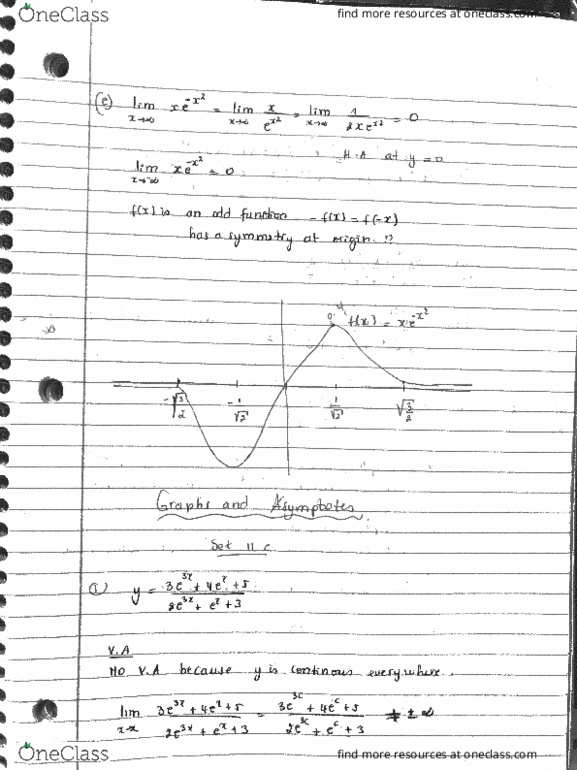 OneClass
find more resources at oneclass.com
(e) lim x→∞ xe^-x² = lim x→∞ x/e^x² = lim x→∞ 1/2xe^x² = 0
H.A at y=0
lim x→-∞ xe^-x² = 0
f(x) is an odd function -f(x) = f(-x)
has a symmetry at origin !!
f(x) = xe^-x²
-√3/2 -1/√2 1/√2 √3/2
Graphs and Asymptotes
Set 11 c
① y = 3e^3x + 4e^x + 5 / 2e^3x + e^x + 3
V.A
NO V.A because y is continous everywhere.
lim x→ 3e^3x + 4e^x + 5 / 2e^3x + e^x + 3 = 3e^3c + 4e^c + 5 / 2e^3c + e^c + 3 ≠ ± ∞
OneClass
find more resources at oneclass.com